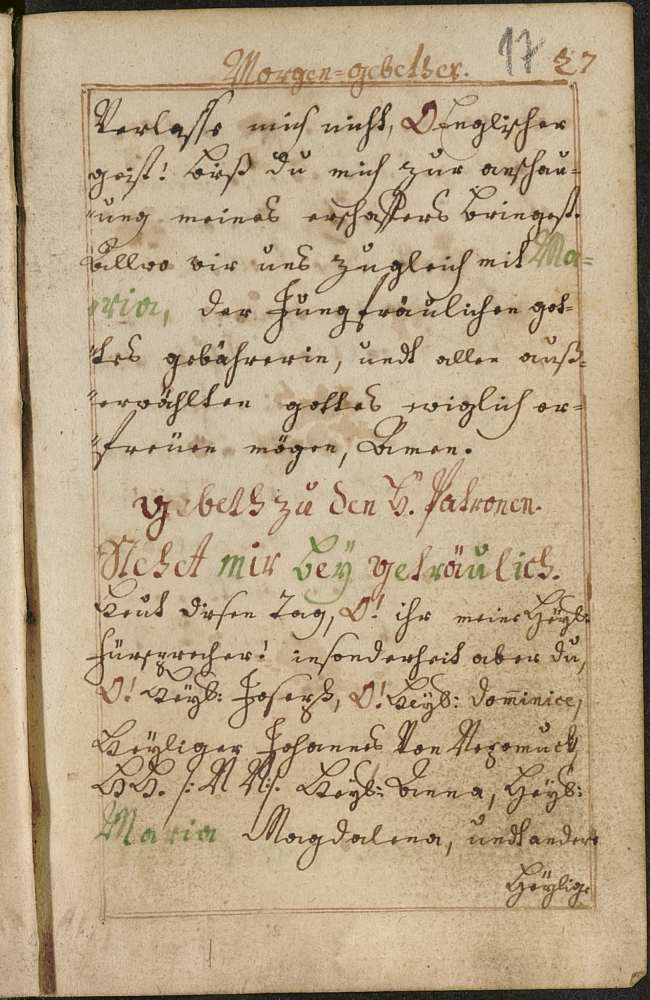 Morgen=gebether.
17 27
Verlasse mich nicht, O Englischer
geist! biß du mich zur anschau=
ung meines erschaffers bringest.
Allwo wir uns zugleich mit Ma=
ria, der Jungfräulichen got=
tes gebährerin, undt allen auß=
erwöhlten gottes ewiglich er=
freüen mögen, Amen.
gebeth zu den H. Patronen.
Stehet mir bey geträulich.
Heut disen Tag, O! ihr meine Heyl:
fürsprecher! insonderheit aber du,
O! Heyl: Joseph, O! Heyl: Dom̄inice,
Heyliger Johannes Von Nepomuck,
HH. /: N N :/. Heyl: Anna, Heyl:
Maria Magdalena, undt andere
Heylige